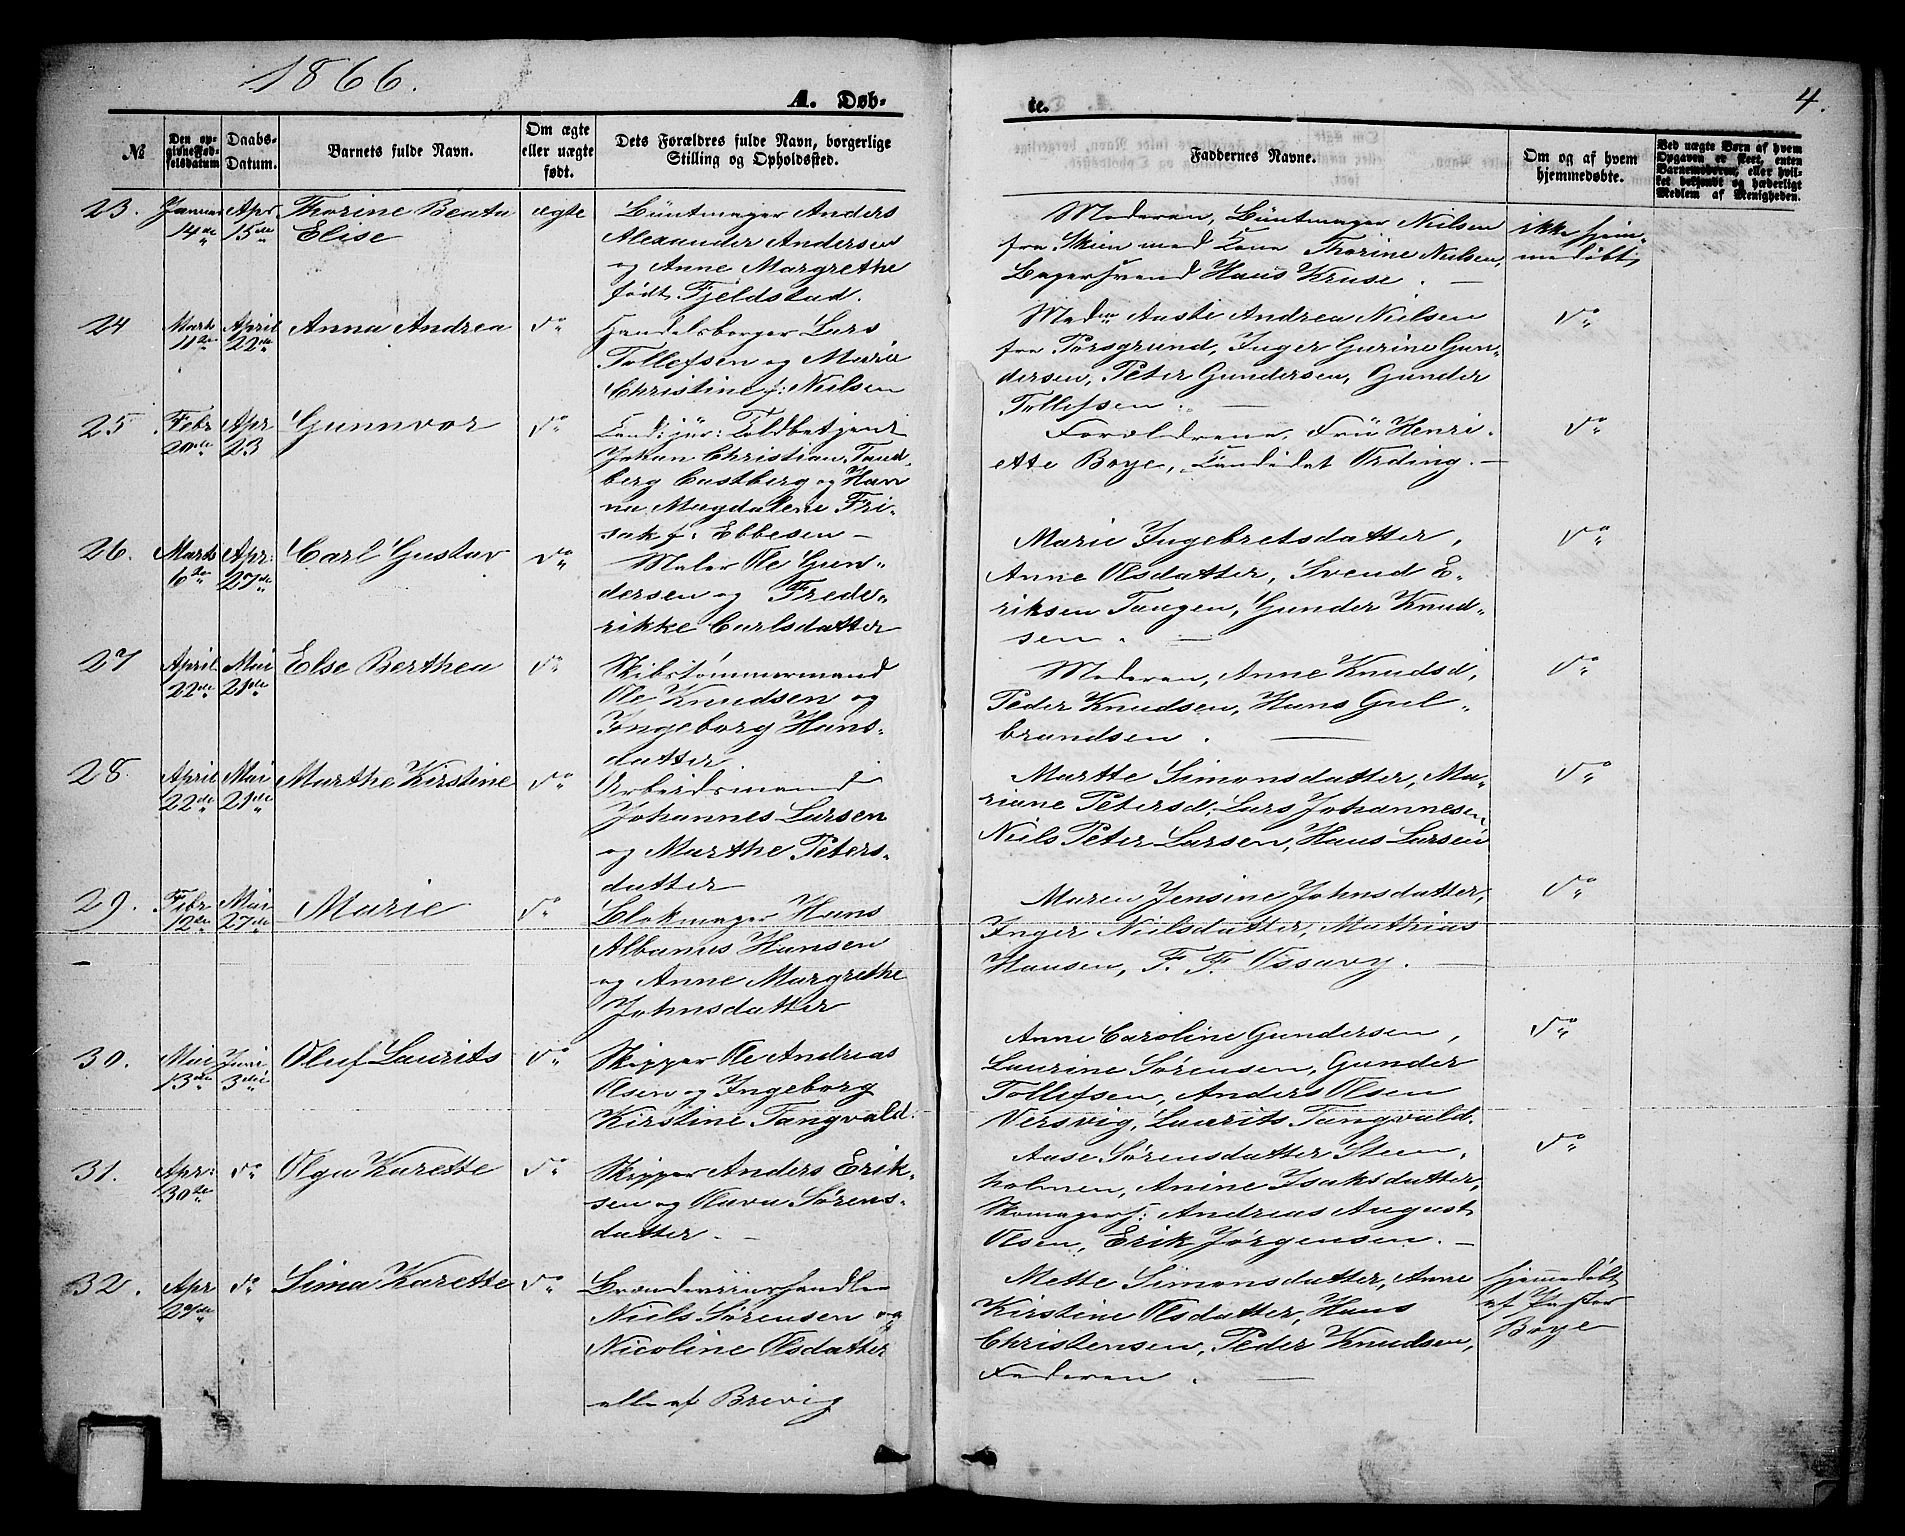 1866.
A. Døb-
te.
4.
№
Den op-
givne Fød-
selsdatum
Daabs-
Datum.
Barnets fulde Navn.
Om ægte
eller uægte
født.
Dets Forældres fulde Navn, borgerlige
Stilling og Opholdssted.
Faddernes Navne.
Om og af hvem
hjemmedøbte.
Ved uægte Børn af hvem
Opgaven er skeet, enten
Barnemoderen, eller hvil-
ket bekjendt og hæderligt
Medlem af Menigheden.
23. Januar Apr. Thorine Beata ægte Buntmager Anders
14de 15de Elise Alexander Andersen
og Anne Margrethe
født Fjeldstad.
Moderen, Buntmager Nielsen ikke hjem-
fra Skien med Kone Thorine Nielsen, medøbt
Bagersvend Hans Kruse. —
24 Marts April Anna Andrea do Handelsborger Lars
11te 22de Tollefsen og Maria
Christine f: Nielsen
Mad. Aasti Andrea Nielsen do
fra Porsgrund, Inger Gurine Gun-
dersen, Peter Gundersen, Gunder
Tollefsen. —
25 Febr Apr Gunnvor do Cand. jur: Toldbetjent
20de 23 Johan Christian Tand-
berg Castberg og Han
na Magdalene Fri-
sak f. Ebbesen —
Forældrene, Frü Henri- do
ette Boye, Candidat Ording. —
26. Marts Apr: Carl Gustav do Maler Ole Gun-
6te 27de dersen og Frede-
rikke Carlsdatter
Marie Ingebretsdatter, do
Anne Olsdatter, Svend E-
riksen Tangen, Gunder Knud-
sen. —
27 April Mai Else Berthea do Skibstømmermand
22de 21de Ole Knudsen og
Ingeborg Hans-
datter.
Moderen, Anne Knudsd, do
Peder Knudsen, Hans Gul-
brandsen. —
28. April Mai Marthe Kirstine do Arbeidsmand
22de 21de Johannes Larsen
og Marthe Peters-
datter
Martte Simonsdatter, Ma- do
riane Petersd, Lars Johannesen,
Niels Peter Larsen, Hans Larsen
29. Febr Mai Marie do Blokmager Hans
12te 27de Albanus Hansen
og Anne Margrethe
Johnsdatter
Maren Jensine Johnsdatter, do
Inger Nielsdatter, Mathias
Hansen, F. F. Ossavy. —
30. Mai Juni Oluf Laurits do Skipper Ole Andreas
13de 3die Olsen og Ingeborg
Kirstine Tangvald.
Anne Caroline Gundersen, do
Laurine Sørensen, Gunder
Tollefsen, Anders Olsen
Versvig, Laurits Tangvald.
31. Apr: do Olga Karette do Skipper Anders Erik-
30te sen og Olava Sørens-
datter. —
Aase Sørensdatter Steen- do
holmen, Anine Isaksdatter,
Skomagers: Andreas August
Olsen, Erik Jørgensen. —
32. Apr do Sima Karette do Brændeviinshandler
29de Niels Sørensen og
Nicoline Olsdatter
alle af Brevig
Mette Simonsdatter, Anne hjemmedøbt
Kirstine Olsdatter, Hans af Pastor
Christensen, Peder Knudsen, Boye
Faderen. —